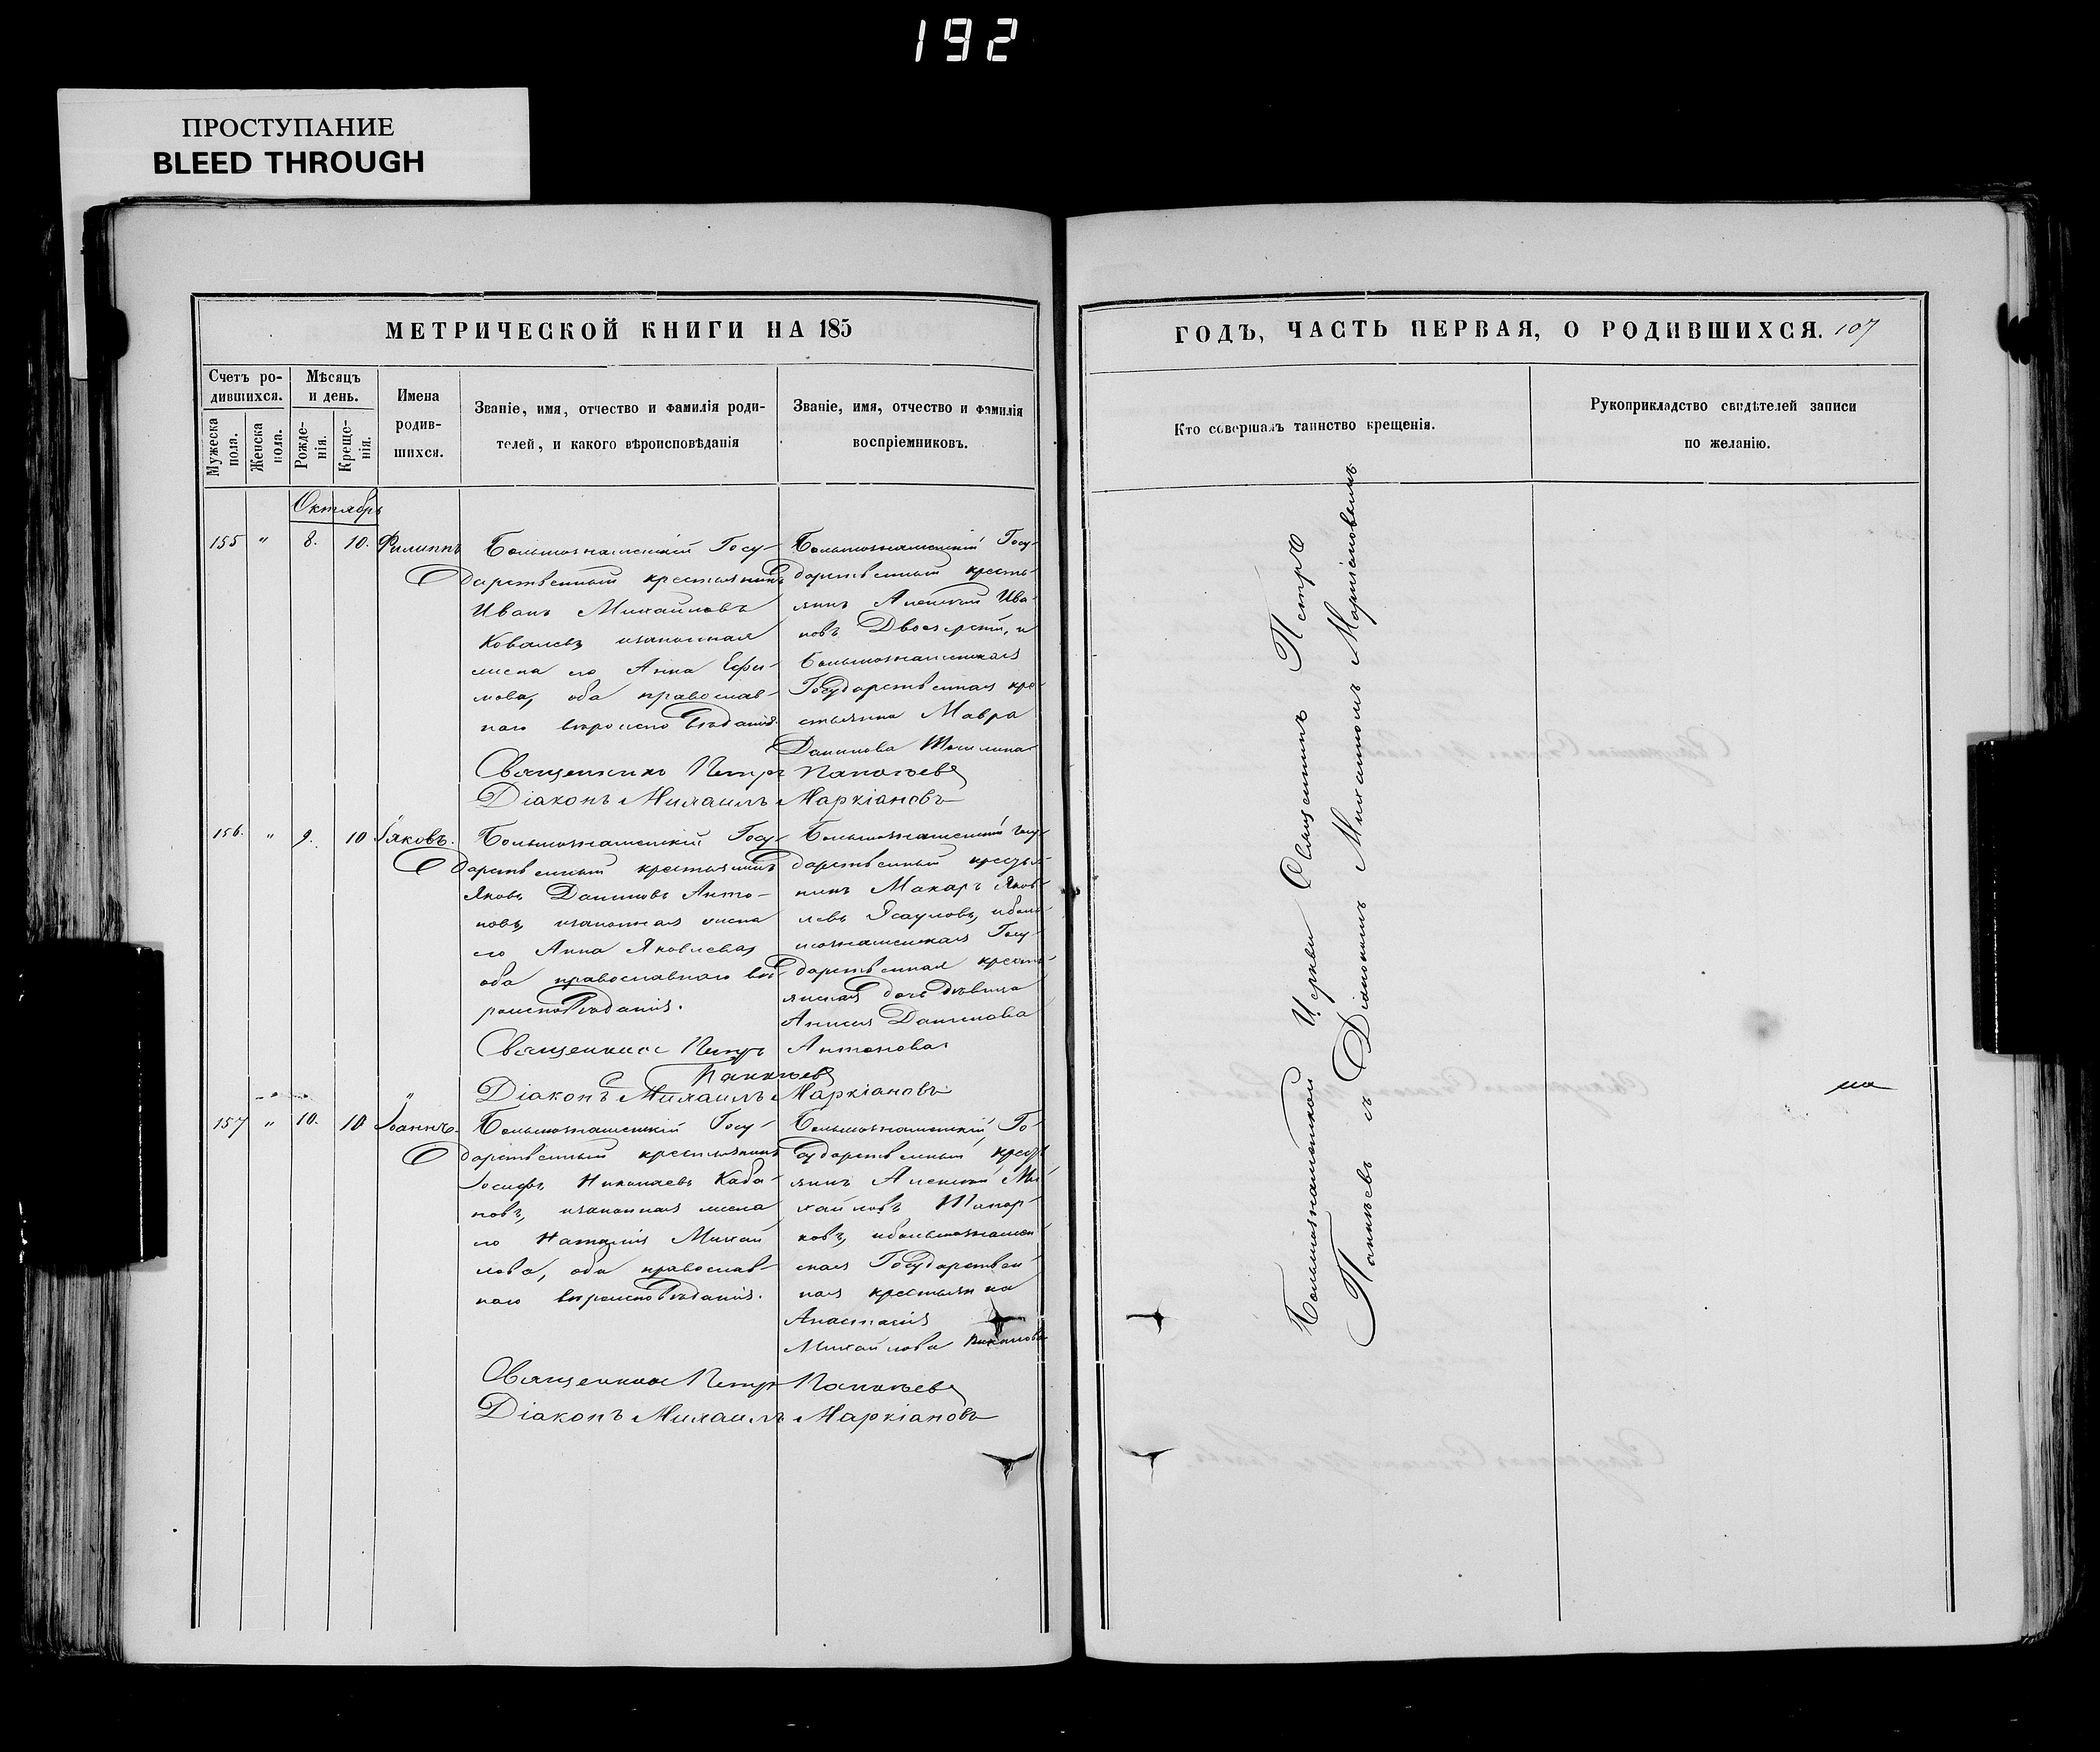 192
ПРОСТУПАНИЕ
BLEED THROUGH
МЕТРИЧЕСКОЙ КНИГИ НА 185
Счетъ ро-
дившихся.
Мужеска
пола.
Женска
пола.
Мѣсяцъ
и день.
Рожде-
нія.
Креще-
нія.
Имена
родив-
шихся.
Званіе, имя, отчество и фамилія роди-
телей, и какого вѣроисповѣданія
Званіе, имя, отчество и фамилія
воспріемниковъ.
Октябрь
155 " 8. 10. Филиппъ
Большознаменскій Госу-
дарственный крестьянинъ
Иванъ Михайловъ
Ковалевъ изаконная
жена его Анна Ефи-
мова, оба православ-
наго вѣроисповѣданія.
Большознаменскій Госу-
дарственный кресть-
янинъ Алексѣй Ива-
новъ и
Большознаменская
Государственная кре-
стьянка Мавра
Данилова
Священникъ Петръ Панкѣевъ
Діаконъ Михаилъ Маркіановъ
156. " 9. 10 Іяковъ.
Большознаменскій Госу-
дарственный крестьянинъ
Яковъ Даниловъ Анто-
новъ, изаконная жена
его Анна Яковлева,
оба православнаго вѣ-
роисповѣданія.
Большознаменскій Госу-
дарственный крестья-
нинъ Макаръ Яков-
левъ Ясауловъ, иболь-
шознаменская Госу-
дарственная кресть-
янская дочь дѣвица
Анисія Данилова
Антонова
Священникъ Петръ
Панкѣевъ
Діаконъ Михаилъ Маркіановъ
157 " 10. 10 Іоаннъ.
Большознаменскій Госу-
дарственный крестьянинъ
Іосифъ Николаевъ Каба-
новъ, изаконная жена
его Наталія Михай-
лова, оба православ-
наго вѣроисповѣданія.
Большознаменскій Го-
сударственный кресть-
янинъ Алексѣй Ми-
хайловъ
ковъ, ибольшознамен-
ская Государствен-
ная крестьянка
Анастасія
Михайлова
Священникъ Петръ Панкѣевъ
Діаконъ Михаилъ Маркіановъ
ГОДЪ, ЧАСТЬ ПЕРВАЯ, О РОДИВШИХСЯ. 107
Кто совершалъ таинство крещенія.
Рукоприкладство свидѣтелей записи
по желанію.
Большознаменской Церкви Священникъ Петръ
Панкѣевъ съ Діакономъ Михаиломъ Маркіановымъ